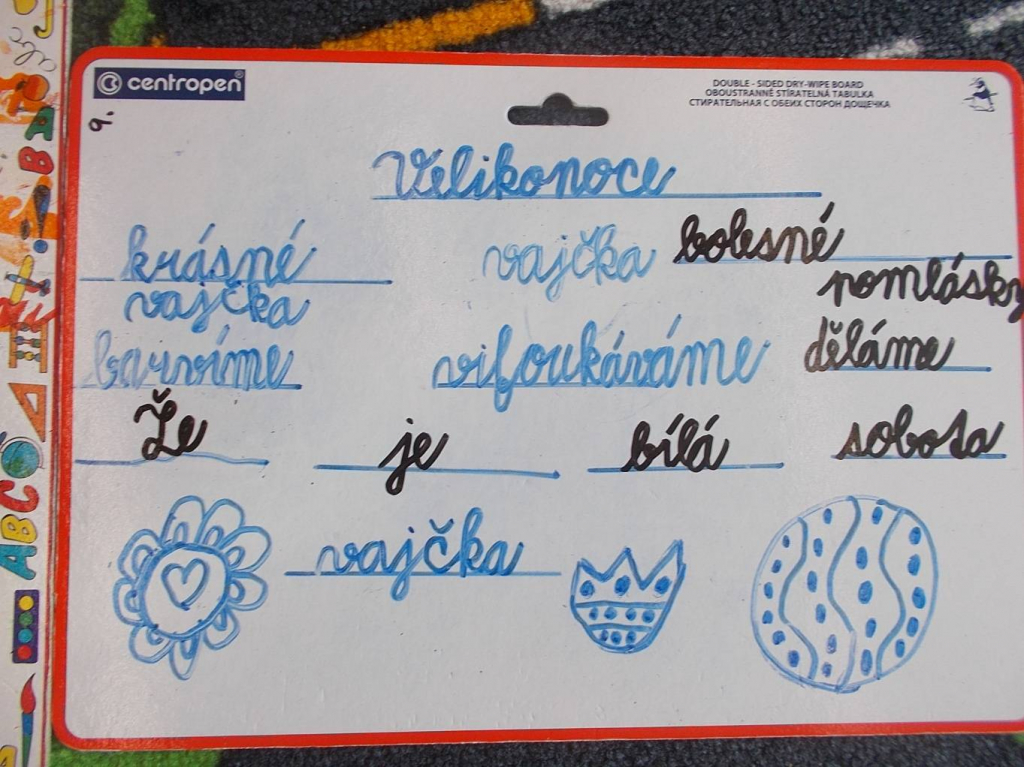 centropen®
DOUBLE - SIDED DRY-WIPE BOARD
OBOUSTRANNĚ STÍRATELNÁ TABULKA
СТИРАТЕЛЬНАЯ С ОБЕИХ СТОРОН ДОЩЕЧКА
9.
Velikonoce
krásné vajčka bolesné
vajčka pomlásky
barvíme vifoukáváme děláme
Že je bílá sobota
vajčka
ABC